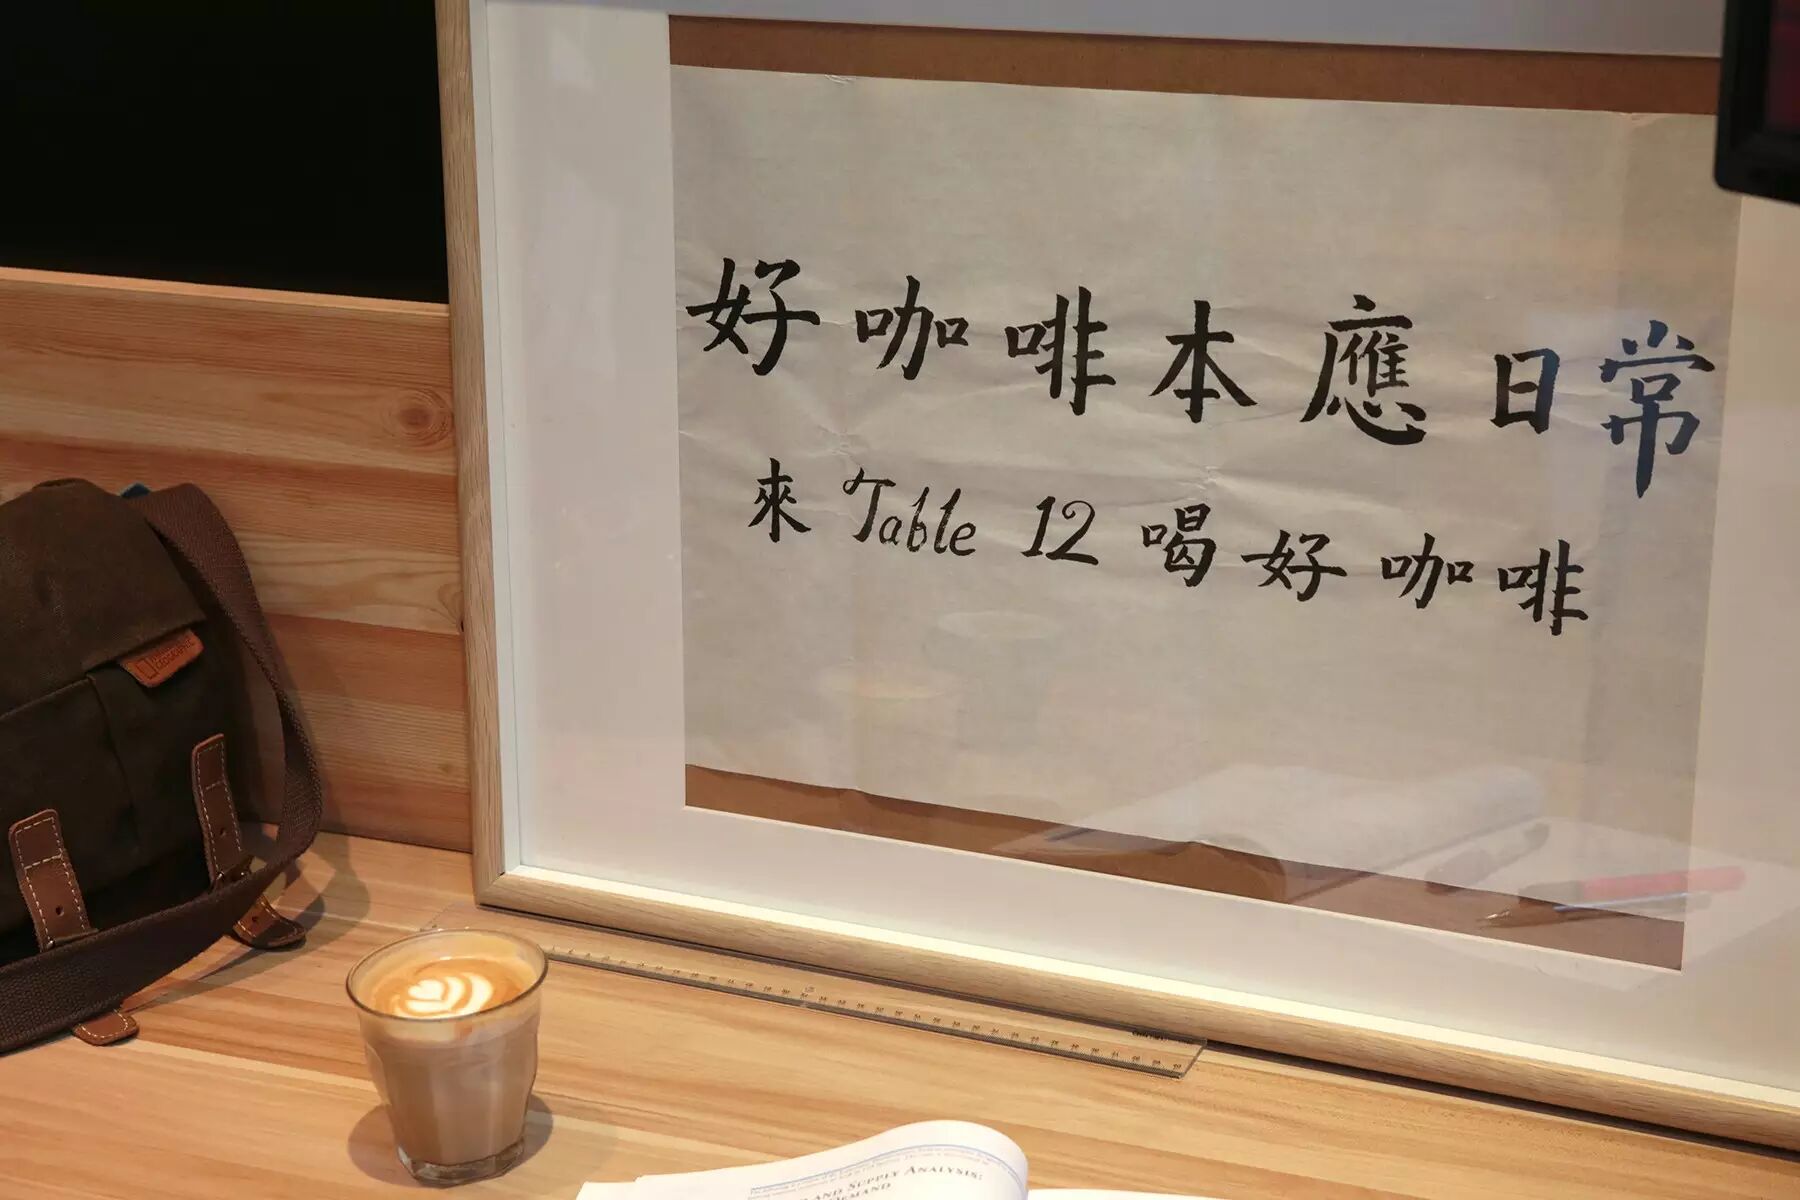 好咖啡本應日常
來 Table 12 喝好咖啡
GEOGRAPHIC
AND SUPPLY ANALYSIS:
DEMAND